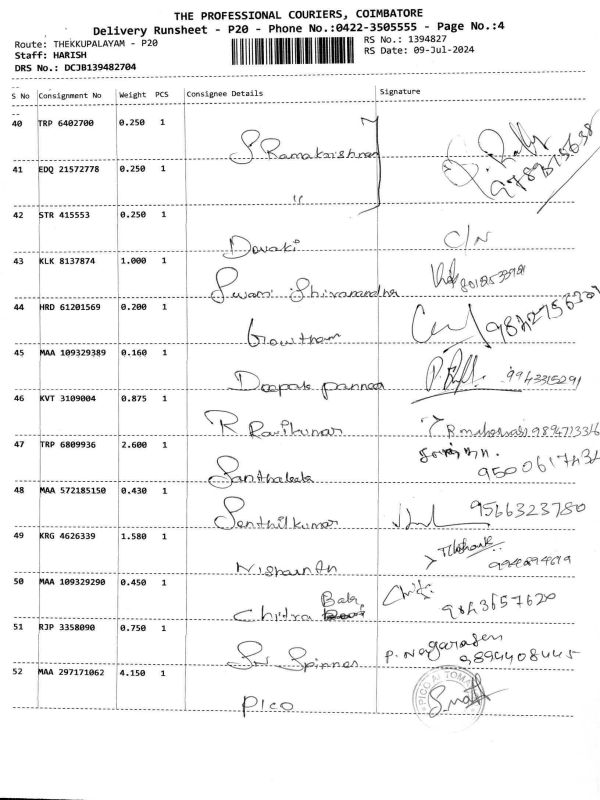 THE PROFESSIONAL COURIERS, COIMBATORE
Delivery Runsheet - P20 - Phone No.:0422-3505555 - Page No.:4
Route: THEKKUPALAYAM - P20
RS No.: 1394827
Staff: HARISH
RS Date: 09-Jul-2024
DRS No.: DCJB139482704
S No Consignment No Weight PCS Consignee Details Signature
40 TRP 6402700 0.250 1
S Ramakrishnan
41 EDQ 21572778 0.250 1
"
42 STR 415553 0.250 1
Devaki C/N
43 KLK 8137874 1.000 1
Swami Shivanandha
44 HRD 61201569 0.200 1
Gowtham 9842756321
45 MAA 109329389 0.160 1
Deepak panneer 9943315291
46 KVT 3109004 0.875 1
R Ravikumar
47 TRP 6809936 2.600 1
Santhaleela 9500617434
48 MAA 572185150 0.430 1
Senthilkumar 9566323780
49 KRG 4626339 1.580 1
Nishanth
50 MAA 109329290 0.450 1
Chitra Babu 9843657620
51 RJP 3358090 0.750 1
Sri Spinner P. Nagarasen 9894408445
52 MAA 297171062 4.150 1
PICO